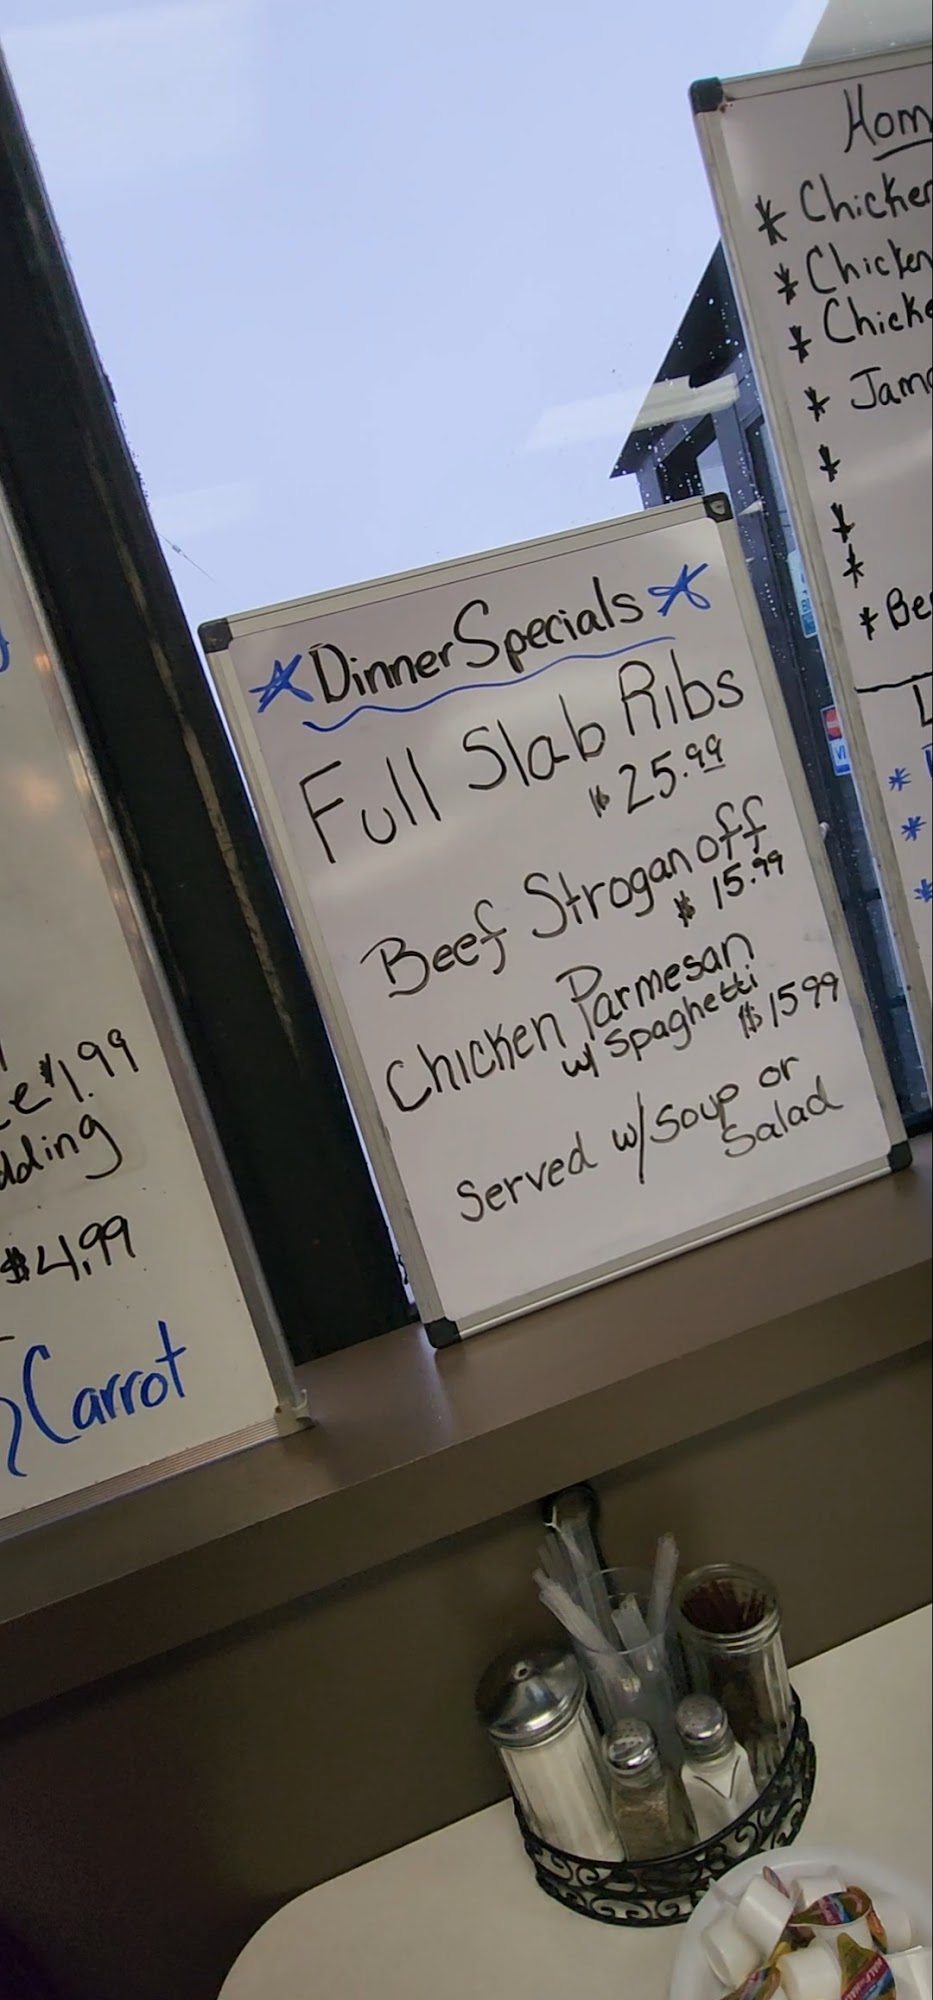 e $1.99
$4.99
Carrot
*Dinner Specials*
Full Slab Ribs
$25.99
Beef Stroganoff
$15.99
Chicken Parmesan
w/ Spaghetti
$1599
Served w/Soup or
Salad
Hom
* Chicken
* Chicken
* Chicke
* Jama
*
*
*
* Be
L
*
*
*